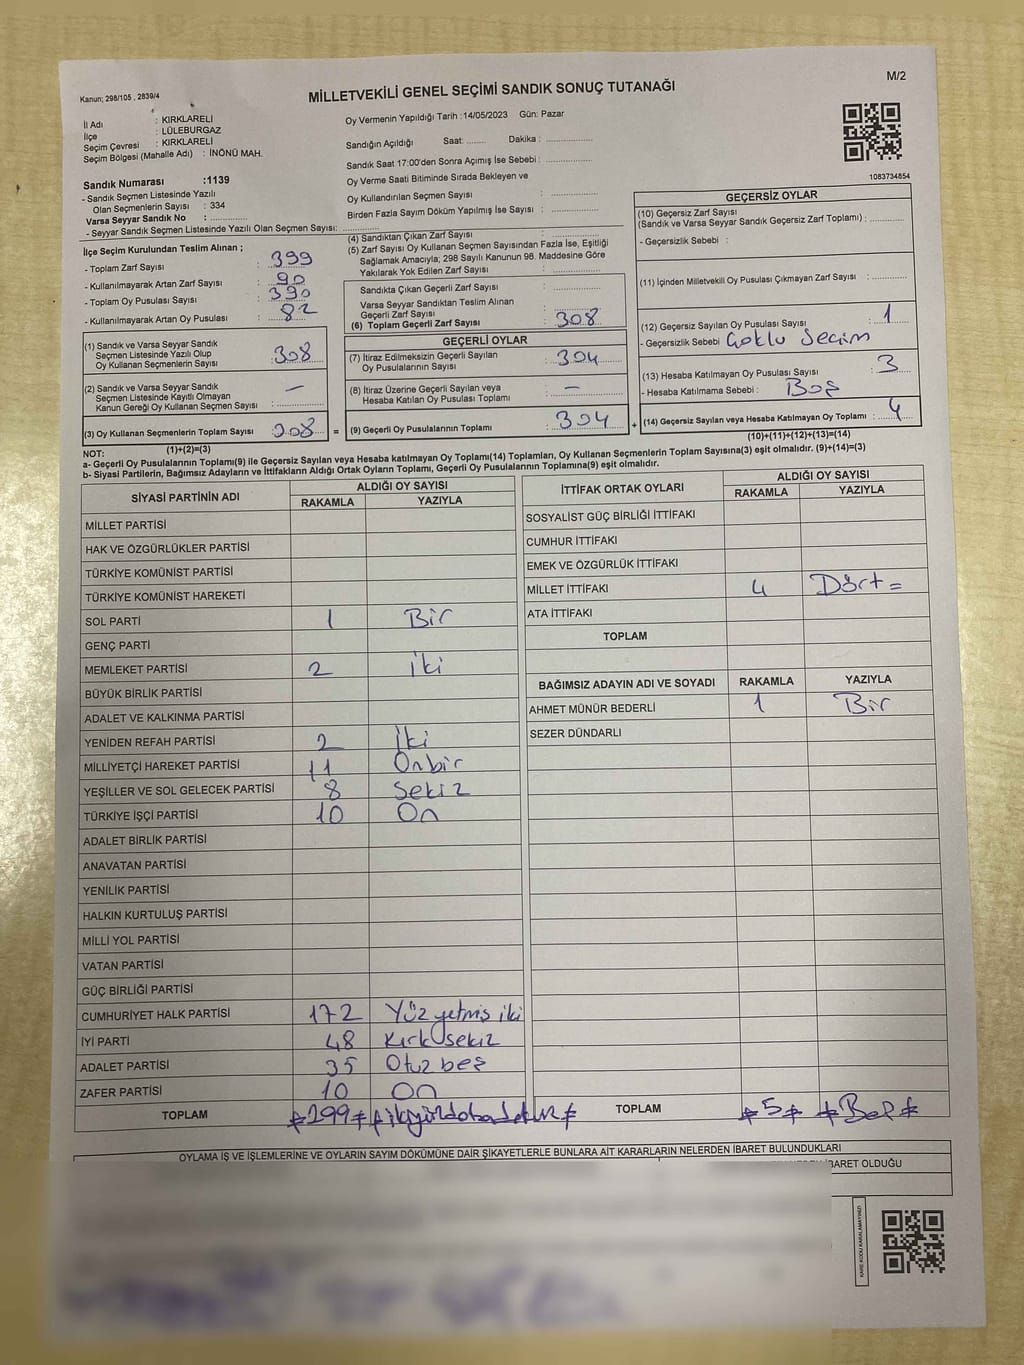 Kanun; 298/105 , 2839/4
M/2
MİLLETVEKİLİ GENEL SEÇİMİ SANDIK SONUÇ TUTANAĞI
İl Adı : KIRKLARELİ
İlçe : LÜLEBURGAZ
Seçim Çevresi : KIRKLARELİ
Seçim Bölgesi (Mahalle Adı) : İNÖNÜ MAH.
Sandık Numarası :1139
- Sandık Seçmen Listesinde Yazılı
Olan Seçmenlerin Sayısı : 334
Varsa Seyyar Sandık No : ..............
- Seyyar Sandık Seçmen Listesinde Yazılı Olan Seçmen Sayısı: ..............
Oy Vermenin Yapıldığı Tarih :14/05/2023 Gün: Pazar
Sandığın Açıldığı Saat: ........ Dakika : ..............
Sandık Saat 17:00'den Sonra Açımış İse Sebebi : ..............
Oy Verme Saati Bitiminde Sırada Bekleyen ve
Oy Kullandırılan Seçmen Sayısı : ..............
Birden Fazla Sayım Döküm Yapılmış İse Sayısı : ..............
1083734854
İlçe Seçim Kurulundan Teslim Alınan ;
- Toplam Zarf Sayısı : 399
- Kullanılmayarak Artan Zarf Sayısı : 90
- Toplam Oy Pusulası Sayısı : 390
- Kullanılmayarak Artan Oy Pusulası : 82
(1) Sandık ve Varsa Seyyar Sandık
Seçmen Listesinde Yazılı Olup
Oy Kullanan Seçmenlerin Sayısı : 308
(2) Sandık ve Varsa Seyyar Sandık
Seçmen Listesinde Kayıtlı Olmayan
Kanun Gereği Oy Kullanan Seçmen Sayısı : —
(3) Oy Kullanan Seçmenlerin Toplam Sayısı : 308
(1)+(2)=(3)
(4) Sandıktan Çıkan Zarf Sayısı : ..............
(5) Zarf Sayısı Oy Kullanan Seçmen Sayısından Fazla İse, Eşitliği
Sağlamak Amacıyla; 298 Sayılı Kanunun 98. Maddesine Göre
Yakılarak Yok Edilen Zarf Sayısı : ..............
Sandıkta Çıkan Geçerli Zarf Sayısı : ..............
Varsa Seyyar Sandıktan Teslim Alınan
Geçerli Zarf Sayısı : ..............
(6) Toplam Geçerli Zarf Sayısı : 308
GEÇERLİ OYLAR
(7) İtiraz Edilmeksizin Geçerli Sayılan
Oy Pusulalarının Sayısı : 304
(8) İtiraz Üzerine Geçerli Sayılan veya
Hesaba Katılan Oy Pusulası Toplamı : —
= (9) Geçerli Oy Pusulalarının Toplamı : 304 +
GEÇERSİZ OYLAR
(10) Geçersiz Zarf Sayısı
(Sandık ve Varsa Seyyar Sandık Geçersiz Zarf Toplamı) : ..............
- Geçersizlik Sebebi :
(11) İçinden Milletvekili Oy Pusulası Çıkmayan Zarf Sayısı : ..............
(12) Geçersiz Sayılan Oy Pusulası Sayısı : 1
- Geçersizlik Sebebi Çoklu Seçim
(13) Hesaba Katılmayan Oy Pusulası Sayısı : 3
- Hesaba Katılmama Sebebi : Boş
(14) Geçersiz Sayılan veya Hesaba Katılmayan Oy Toplamı : 4
(10)+(11)+(12)+(13)=(14)
NOT:
a- Geçerli Oy Pusulalarının Toplamı(9) ile Geçersiz Sayılan veya Hesaba katılmayan Oy Toplamı(14) Toplamları, Oy Kullanan Seçmenlerin Toplam Sayısına(3) eşit olmalıdır. (9)+(14)=(3)
b- Siyasi Partilerin, Bağımsız Adayların ve İttifakların Aldığı Ortak Oyların Toplamı, Geçerli Oy Pusulalarının Toplamına(9) eşit olmalıdır.
SİYASİ PARTİNİN ADI ALDIĞI OY SAYISI
RAKAMLA YAZIYLA
MİLLET PARTİSİ
HAK VE ÖZGÜRLÜKLER PARTİSİ
TÜRKİYE KOMÜNİST PARTİSİ
TÜRKİYE KOMÜNİST HAREKETİ
SOL PARTİ 1 Bir
GENÇ PARTİ
MEMLEKET PARTİSİ 2 iki
BÜYÜK BİRLİK PARTİSİ
ADALET VE KALKINMA PARTİSİ
YENİDEN REFAH PARTİSİ 2 İki
MİLLİYETÇİ HAREKET PARTİSİ 11 Onbir
YEŞİLLER VE SOL GELECEK PARTİSİ 8 Sekiz
TÜRKİYE İŞÇİ PARTİSİ 10 On
ADALET BİRLİK PARTİSİ
ANAVATAN PARTİSİ
YENİLİK PARTİSİ
HALKIN KURTULUŞ PARTİSİ
MİLLİ YOL PARTİSİ
VATAN PARTİSİ
GÜÇ BİRLİĞİ PARTİSİ
CUMHURİYET HALK PARTİSİ 172 Yüz yetmiş iki
İYİ PARTİ 48 Kırk sekiz
ADALET PARTİSİ 35 Otuz beş
ZAFER PARTİSİ 10 On
TOPLAM 299
İTTİFAK ORTAK OYLARI ALDIĞI OY SAYISI
RAKAMLA YAZIYLA
SOSYALİST GÜÇ BİRLİĞİ İTTİFAKI
CUMHUR İTTİFAKI
EMEK VE ÖZGÜRLÜK İTTİFAKI
MİLLET İTTİFAKI 4 Dört =
ATA İTTİFAKI
TOPLAM
BAĞIMSIZ ADAYIN ADI VE SOYADI RAKAMLA YAZIYLA
AHMET MÜNÜR BEDERLİ 1 Bir
SEZER DÜNDARLI
TOPLAM 5 Beş
OYLAMA İŞ VE İŞLEMLERİNE VE OYLARIN SAYIM DÖKÜMÜNE DAİR ŞİKAYETLERLE BUNLARA AİT KARARLARIN NELERDEN İBARET BULUNDUKLARI
İBARET OLDUĞU
KARE KODU KARALAMAYINIZ!